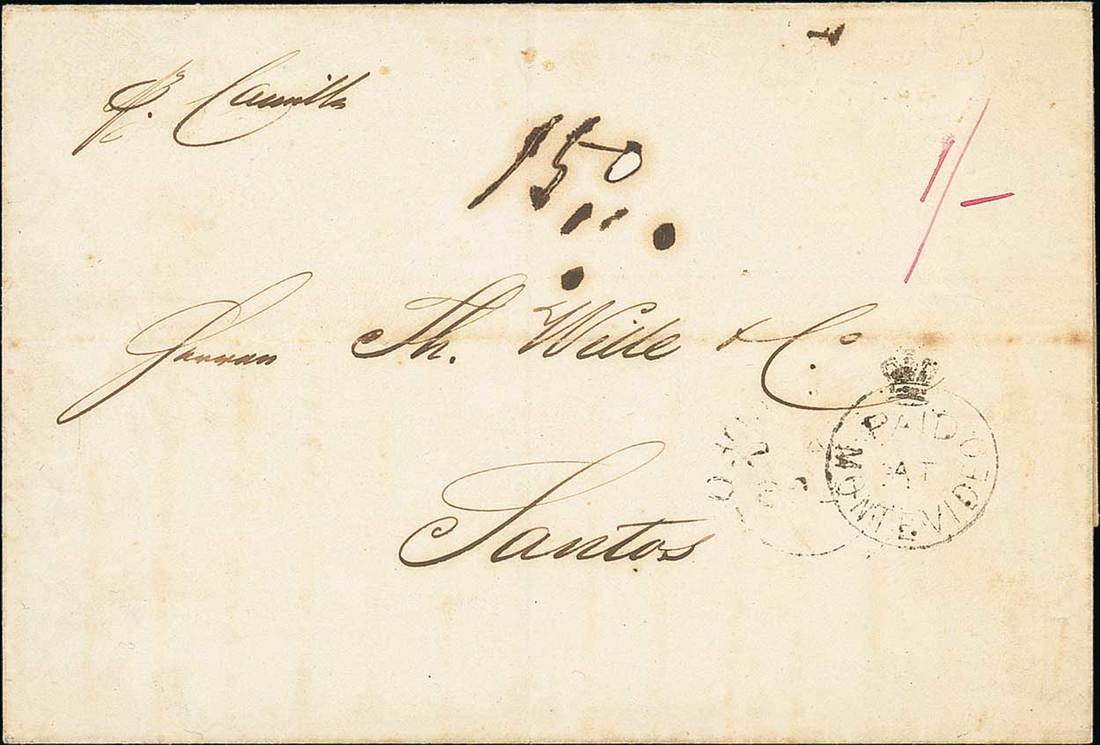 p. Camilla
150
1/-
Herren Th. Wille & Co
Santos
PAID
AT
MONTEVIDEO